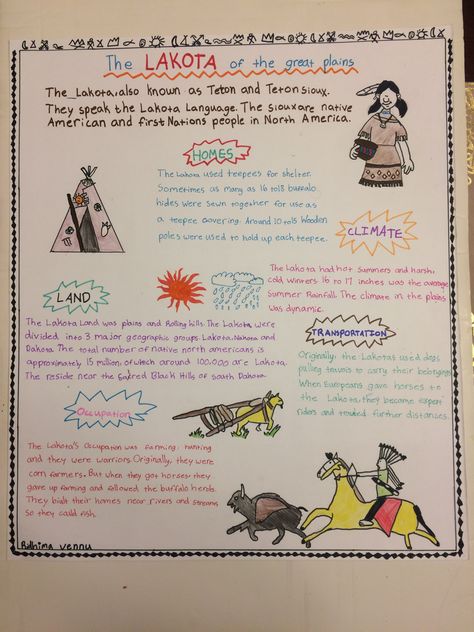 The LAKOTA of the great plains
The Lakota, also known as Teton and Teton sioux.
They speak the Lakota Language. The sioux are native
American and first Nations people in North America.
HOMES
The Lakota used teepees for shelter.
Sometimes as many as 16 to 18 buffalo
hides were sewn together for use as
a teepee covering. Around 10 to 15 Wooden
poles were used to hold up each teepee.
CLIMATE
The Lakota had hot summers and harsh,
cold winters. 16 to 17 inches was the average
Summer Rainfall. The climate in the plains
was dynamic.
LAND
The Lakota Land was plains and Rolling hills. The Lakota were
divided into 3 major geographic groups. Lakota, Nakota and
Dakota. The total number of native north americans is
approximately 1.5 million, of which around 100,000 are Lakota.
The reside near the sacred Black Hills of south Dakota
TRANSPORTATION
Originally, the Lakotas used dogs
pulling travois to carry their belongings
When Europeans gave horses to
the Lakota, they became expert
riders and traveled further distances.
Occupation
The Lakota's Occupation was farming, hunting
and they were warriors. Originally, they were
corn farmers. But when they got horses they
gave up farming and followed the buffalo herds.
They built their homes near rivers and streams
so they could fish.
Ridhima Vennu